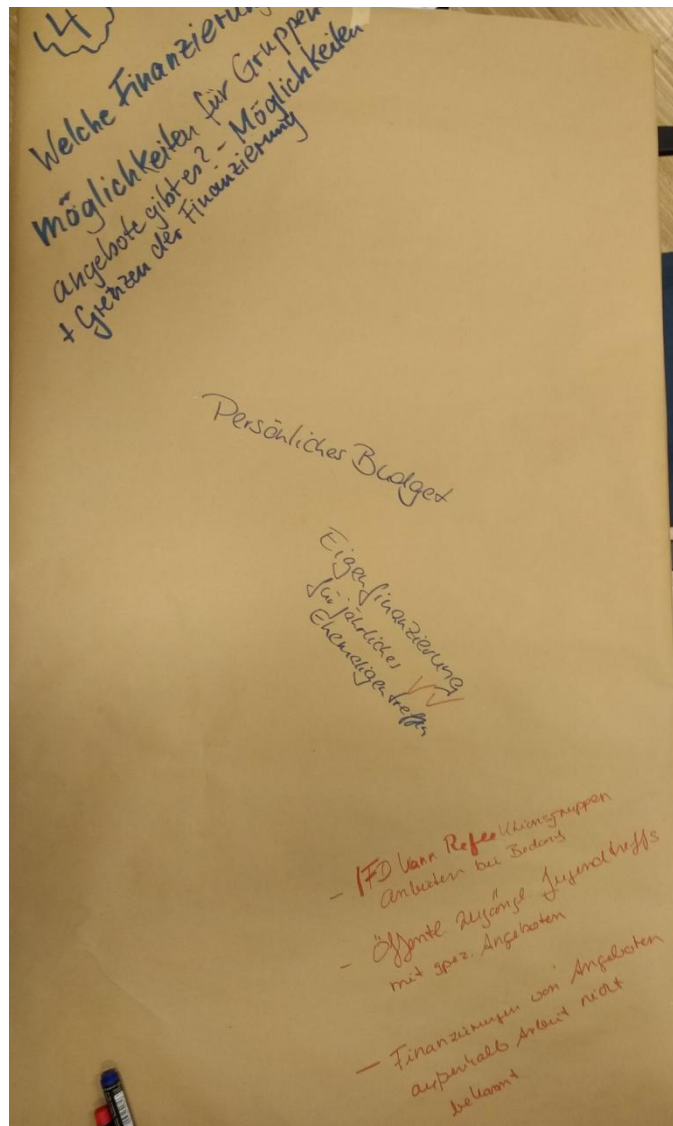 4
Welche Finanzierun
möglichkeiten für Gruppen
angebote gibt es? - Möglichkeiten
+ Grenzen der Finanzierung
Persönliches Budget
Eigenfinanzierung
für jährliches
Ehemaligentreffen
- IFD kann Reflektionsgruppen
anbieten bei Bedarf
- Öffentl zugängl Jugendtreffs
mit spez. Angeboten
- Finanzierungen von Angeboten
außerhalb Arbeit nicht
bekannt